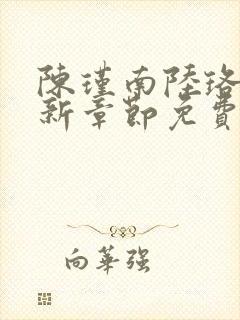 陳瑾南陸珞
新章節免費
向華強